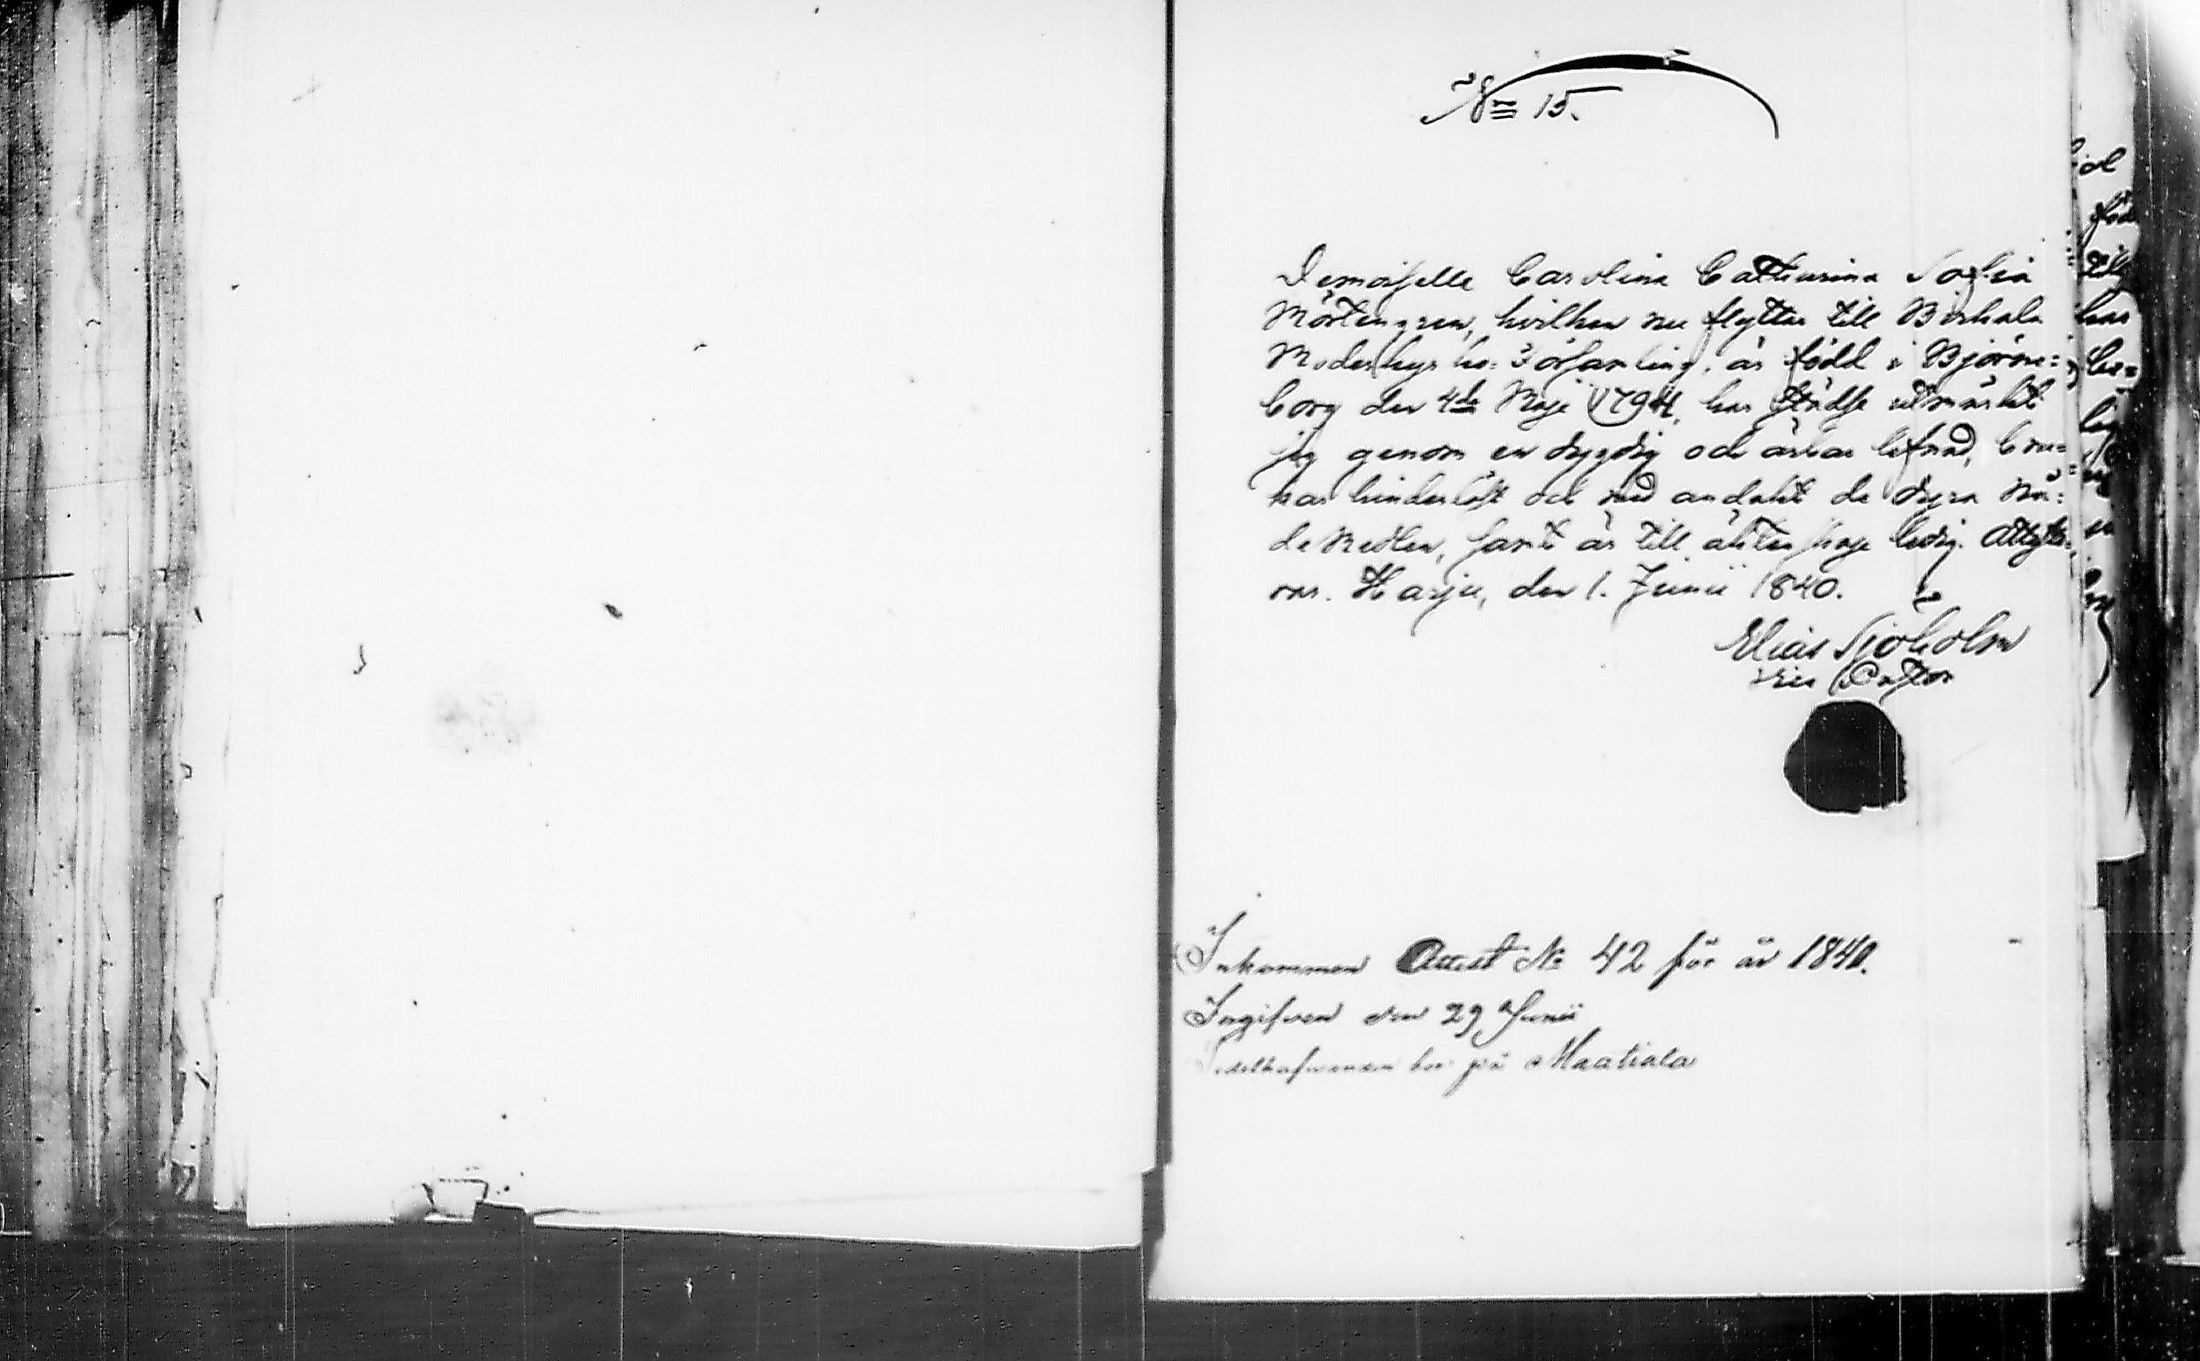 No 15.
Demoiselle Carolina Catharina Sofia
Mörtengren, hvilken nu flyttar till Birkala
Moderkyrko-Församling, är född i Björne=
borg den 4de Maji 1794, har städse utmärkt
sig genom en dygdig och ärbar lefnad, bru=
kar hinderlöst och med andakt de dyra Nå=
demedlen, samt är till äktenskap ledig. Attest=
ras. Harju, den 1. Junii 1840.
Elias Sjöholm
Vice Pastor
Inkommen Attest No 42 för år 1840.
Ingifven den 29 Junii
bor på Maatiala